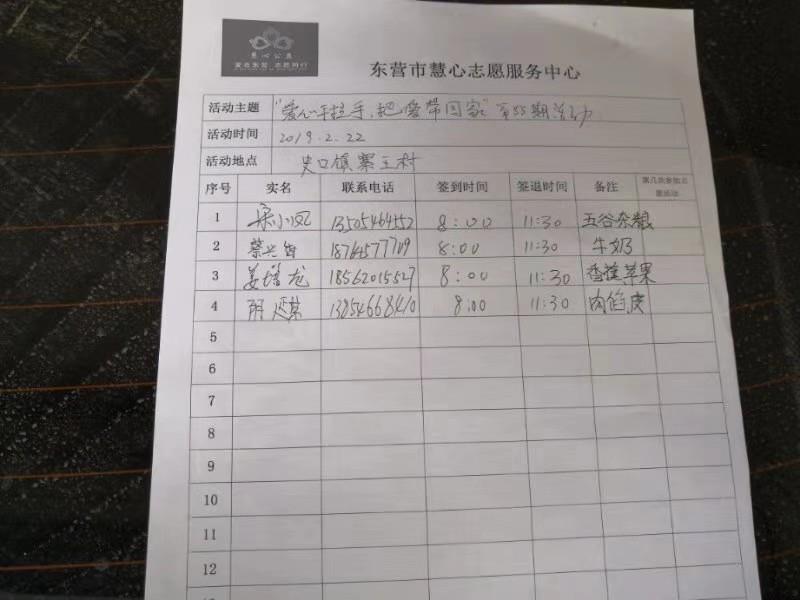 慧心公益
爱在东营 志愿同行
东营市慧心志愿服务中心
活动主题 "爱心手拉手,把爱带回家"第55期活动
活动时间 2019.2.22
活动地点 史口镇寨王村
序号 实名 联系电话 签到时间 签退时间 备注 第几次参加志愿活动
1 宋小凤 13505464552 8:00 11:30 五谷杂粮
2 8:00 11:30 牛奶
3 姜培龙 18562015527 8:00 11:30 香蕉苹果
4 8:00 11:30 肉馅,皮
5
6
7
8
9
10
11
12